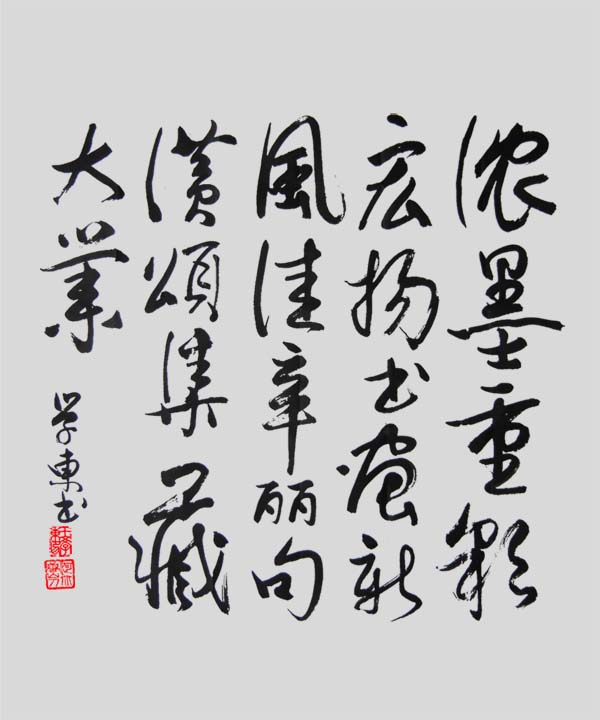 浓墨重彩
宏揚书画新
風佳章丽句
頌集藏
大業
学東书